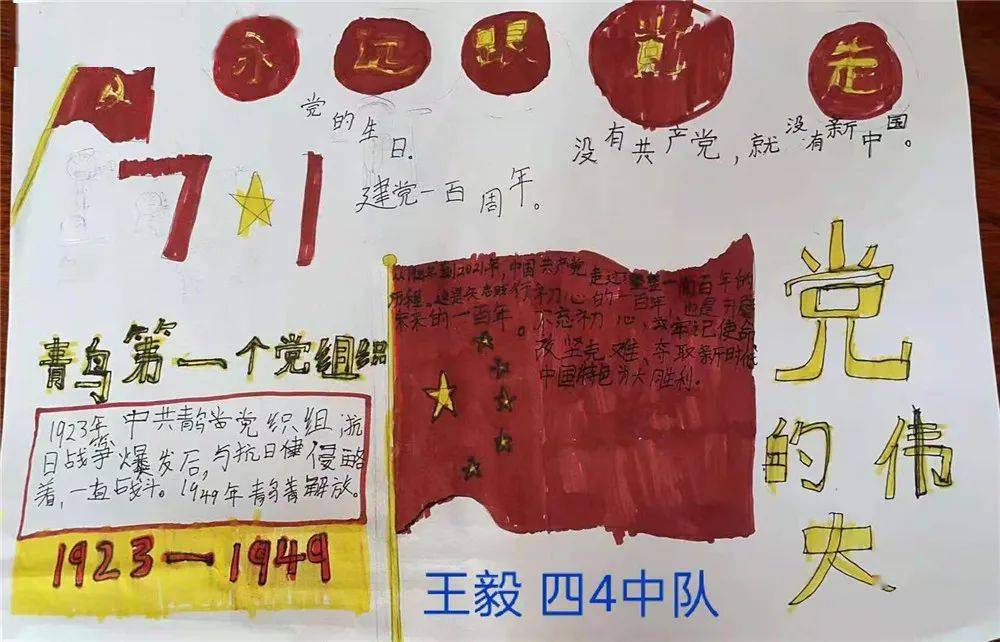 永远跟党走
党的生日.
没有共产党，就没有新中国。
7 1
建党一百周年。
到2021年，中国共产党走过
一百年的
历程。
初心的一百年，也是
未来的一百年。不忘初心、
使命
攻坚克难、夺取新时代
中国特色
大胜利。
党的伟大
青鸟第一个党组织
1923年 中共青岛党织组，抗
日战争爆发后，与抗日侵略
着，一直战斗。1949年青岛解放。
1923—1949
王毅 四4中队